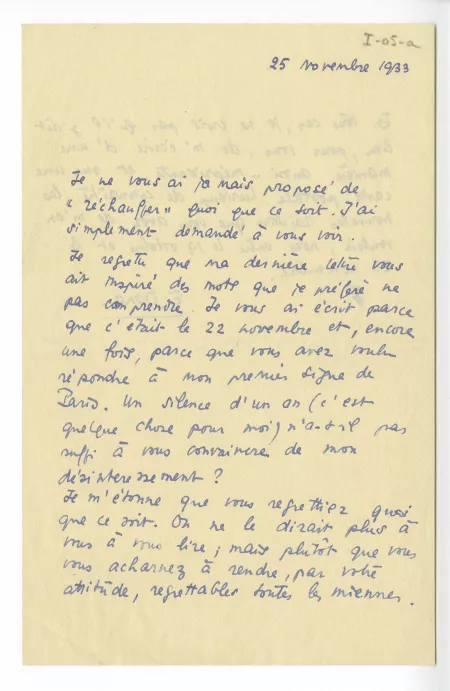 I-05-a
25 novembre 1933
Je ne vous ai jamais proposé de
« réchauffer » quoi que ce soit. J'ai
simplement demandé à vous voir.
Je regrette que ma dernière lettre vous
ait inspiré des mots que je préfère ne
pas comprendre. Je vous ai écrit parce
que c'était le 22 novembre et, encore
une fois, parce que vous avez voulu
répondre à mon premier signe de
Paris. Un silence d'un an (c'est
quelque chose pour moi) n'a-t-il pas
suffi à vous convaincre de mon
désintéressement ?
Je m'étonne que vous regrettiez quoi
que ce soit. On ne le dirait plus à
vous à vous lire ; mais plutôt que vous
vous acharnez à rendre, par votre
attitude, regrettables toutes les miennes.